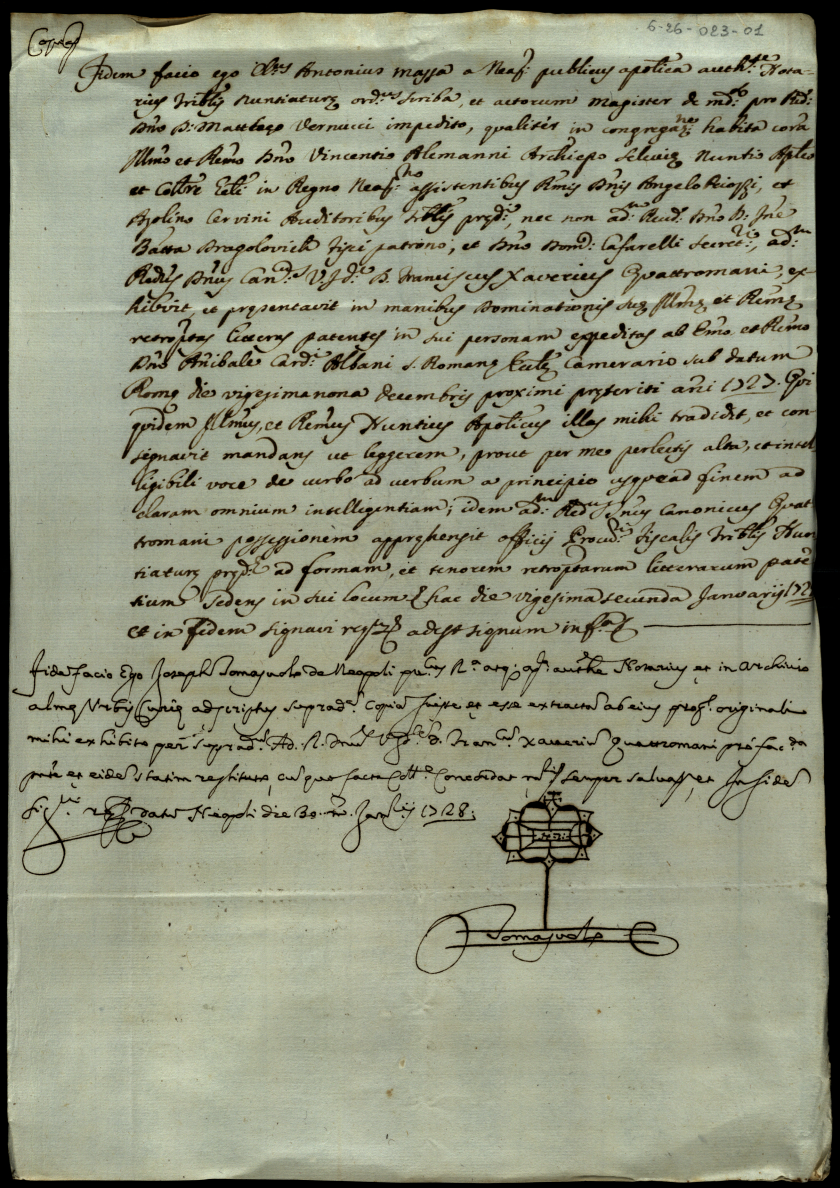 6-26-023-01
Copia
Fidem facio ego Cl:us Antonius Massa a Neap: publicus ap̃olica auth:te Nota-
rius Trib̃lis Nuntiaturæ ord:us scriba, et actorum magister de m̃d:o pro R̃d:
Dño D: Matthæo Vernucci impedito, qualiter in congregaz:ne habita corã
Ill̃mo et Rẽmo Dño Vincentio Alemanni Archiep̃o Seleuciæ Nuntio Ap̃lco
et Coll̃re Gñli in Regno Neap:no assistentibus R̃mis Dñis Angelo
Ajolino Cervini Auditoribus trib̃lis præd:i, nec non ad:m Reud: Dño D: Jõe
Batt̃a Dragolovich fisci patrono, et Dño Dom:o Cafarelli Secret:rio, ad:m
R̃dus Dñus Can:cus V.J.D. D. Franciscus Xaverius Quattromani, ex-
hibuit, et præsentavit in manibus Dominationis suæ Ill̃mæ et Rẽmæ
retrop̃tas litteras patentes in sui personam expeditas ab Em̃o et Rẽmo
Dño Añibale Card: Albani S. Romanæ Eccl̃æ Camerario sub datum
Romæ die vigesimanona decembris proximi præteriti añi 1727. Qui
quidem Ill̃mus, et Rẽmus Nuntius Ap̃olicus illas mihi tradidit, et con-
signavit mandans ut leggerem, prout per me perlectis alta, et intel-
ligibili voce de verbo ad verbum a principio usque ad finem ad
claram omnium intelligentiam; idem ad:m R̃dus Dñus Canonicus Quat-
tromani possessionem apprehensit officij Procu:ris Fiscalis Trib̃lis Nun-
tiaturæ præd:æ ad formam, et tenorem retrop̃tarum litterarum pate-
tium sedens in sui locum hac die vigesima secunda Januarij 172
et in fidem signavi adest signum
Fidẽ facio Ego Joseph Tomasuolo de Neapoli pu:cus R:a atq; ap:ca auth̃te Notarius et in archivio
almæ Urbis Curiæ adscriptus suprad:m copiã fuisse et esse extractã ab eius prop:o originali
mihi exhibito per suprad:m Ad. R. Dñum V.J.D. D. Fran:cus Xaverius Quattromani
et eidẽ statim restituto, cũ quo facta Coll:e Concordat, m:ri semper salva, et In fidẽ
sig:vi datũ Neapoli die 30 m. Jan:rij 1728.
Tomasuolo